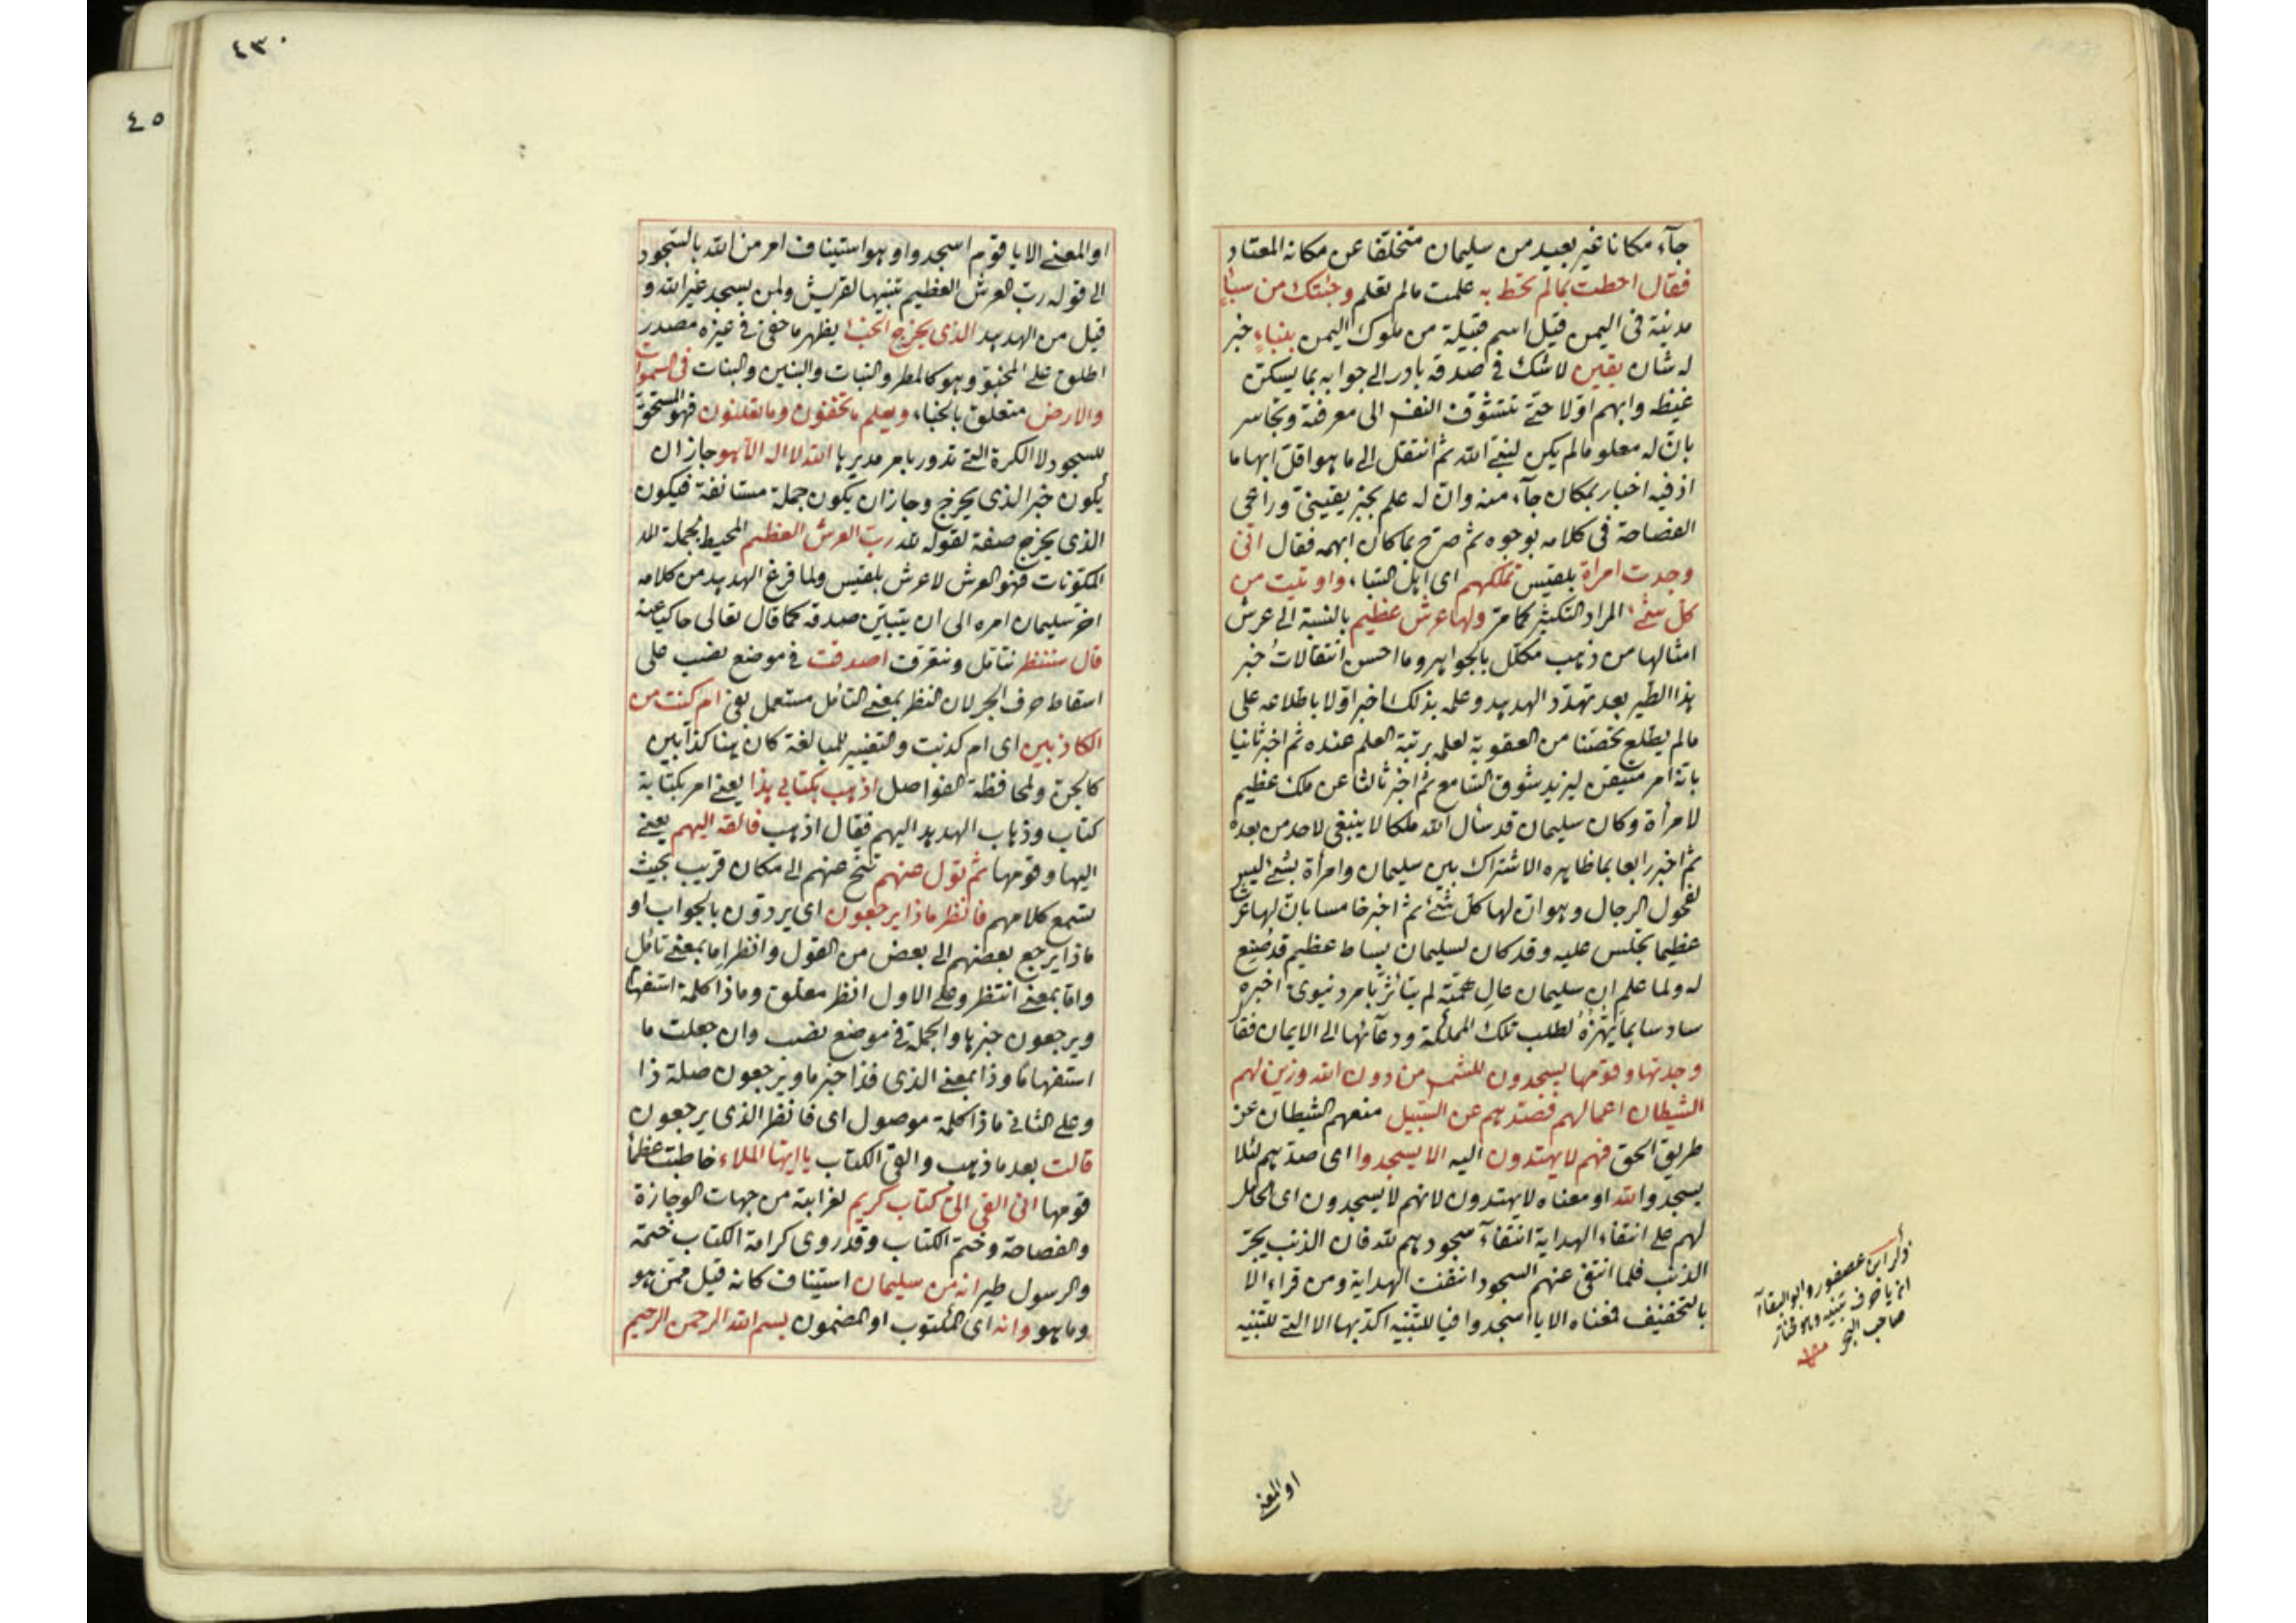 جآء مكانا غير بعيد من سليمان متخلفا عن مكانه المعتاد
فقال احطت بمالم تحط به علمت مالم تعلم وجئتك من سباٍ
مدينة فى اليمن قيل اسم قبيلة من ملوك اليمن بنباءٍ خبر
له شان يقين لا شك فى صدقه بادر الى جوابه بما يسكن
غيظه وابهم اولا حتى تتشوق النفس الى معرفة وتجاسر
بان له معلوما لم يكن لنبى الله ثم انتقل الى ما هو اقل ابهاما
اذ فيه اخبار بمكان جآء منه وان له علم بخبر يقينى وراعى
الفصاحة فى كلامه بوجوه ثم صرح بما كان ابهمه فقال انى
وجدت امراة بلقيس تملكهم اى اهل السبا، واوتيت من
كل شئ المراد التكثير كما مر ولها عرش عظيم بالنسبة الى عرش
امثالها من ذهب مكلل بالجواهر وما احسن انتقالات خبر
هذا الطير بعد تهدد الهدهد وعلمه بذلك اخبر اولا باطلاعه على
مالم يطلع تحصنا من العقوبة لعلمه برتبة العلم عنده ثم اخبر ثانيا
بانه امر متيقن ليزيد شوق السامع ثم اخبر ثالثا عن ملك عظيم
لامرأة وكان سليمان قد سأل الله ملكا لا ينبغى لاحد من بعده
ثم اخبر رابعا بما ظاهره الاشتراك بين سليمان وامرأة بشئ ليس
لفحول الرجال وهو ان لها كل شئ ثم اخبر خامسا بان لها عرشا
عظيما تجلس عليه وقد كان لسليمان بساط عظيم قد صنع
له ولما علم ان سليمان عال همته لم يتأثر بامر دنيوى اخبره
سادسا بما يهزه لطلب تلك المملكة ودعآئها الى الايمان فقال
وجدتها وقومها يسجدون للشمس من دون الله وزين لهم
الشيطان اعمالهم فصدهم عن السبيل منعهم الشيطان عن
طريق الحق فهم لا يهتدون اليه الا يسجدوا اى صدهم لئلا
يسجدوا لله او معناه لا يهتدون لانهم لا يسجدون اى الحامل
لهم على انتفاء الهداية انتفآء سجودهم لله فان الذنب يجر
الذنب فلما انتفى عنهم السجود انتفت الهداية ومن قراء الا
بالتخفيف فمعناه الا يا اسجدوا فيا للتنبيه اكد بها الا التى للتنبيه
ذكر ابن عصفور وابو البقاآ
ان يا حرف تنبيه وهو مختار
صاحب البحر منه
او المعنى
٤٣٠
٤٥
او المعنى الا يا قوم اسجدوا وهو استيناف امر من الله بالسجود
الى قوله رب العرش العظيم تنبيها لقريش ولمن يسجد غير الله و
قيل من الهدهد الذى يخرج الخبأ يظهر ما خفى فى غيره مصدر
اطلق على المخبؤ وهو كالمطر والنبات والبنين والبنات فى السموات
والارض متعلق بالخباء، ويعلم ما تخفون وما تعلنون فهو المستحق
للسجود لا الكرة التى تدور بامر مديرها الله لا اله الا هو جاز ان
يكون خبر الذى يخرج وجاز ان يكون جملة مستانفة فيكون
الذى يخرج صفة لقوله لله رب العرش العظيم المحيط بجملة
المكونات فهو العرش لا عرش بلقيس ولما فرغ الهدهد من كلامه
اخر سليمان امره الى ان يتبين صدقه كما قال تعالى حاكيا عنه
قال سننظر نتامل ونتعرف اصدقت فى موضع نصب على
اسقاط حرف الجر لان النظر بمعنى التامل مستعمل بفى ام كنت من
الكاذبين اى ام كذبت والتغيير للمبالغة كان هنا كذابين
كالجن ولمحافظة الفواصل اذهب بكتابى هذا يعنى امر بكتابة
كتاب وذهاب الهدهد اليهم فقال اذهب فالقه اليهم يعنى
اليها وقومها ثم تول عنهم تنح عنهم الى مكان قريب بحيث
تسمع كلامهم فانظر ماذا يرجعون اى يردون بالجواب او
ماذا يرجع بعضهم الى بعض من القول وانظر اما بمعنى تامل
واما بمعنى انتظر وعلى الاول انظر معلق وماذا كلمة استفهام
ويرجعون خبرها والجملة فى موضع نصب وان جعلت ما
استفهاما وذا بمعنى الذى فذا خبر ما ويرجعون صلة ذا
وعلى الثانى ماذا كلمة موصول اى فانظر الذى يرجعون
قالت بعد ما ذهب والقى الكتاب يا ايها الملاء خاطبت عظماء
قومها انى القى الى كتاب كريم لغرابته من جهات الوجازة
والفصاحة وختم الكتاب وقد روى كرامة الكتاب ختمه
والرسول طير انه من سليمان استيناف كانه قيل ممن هو
وما هو وانه اى المكتوب او المضمون بسم الله الرحمن الرحيم